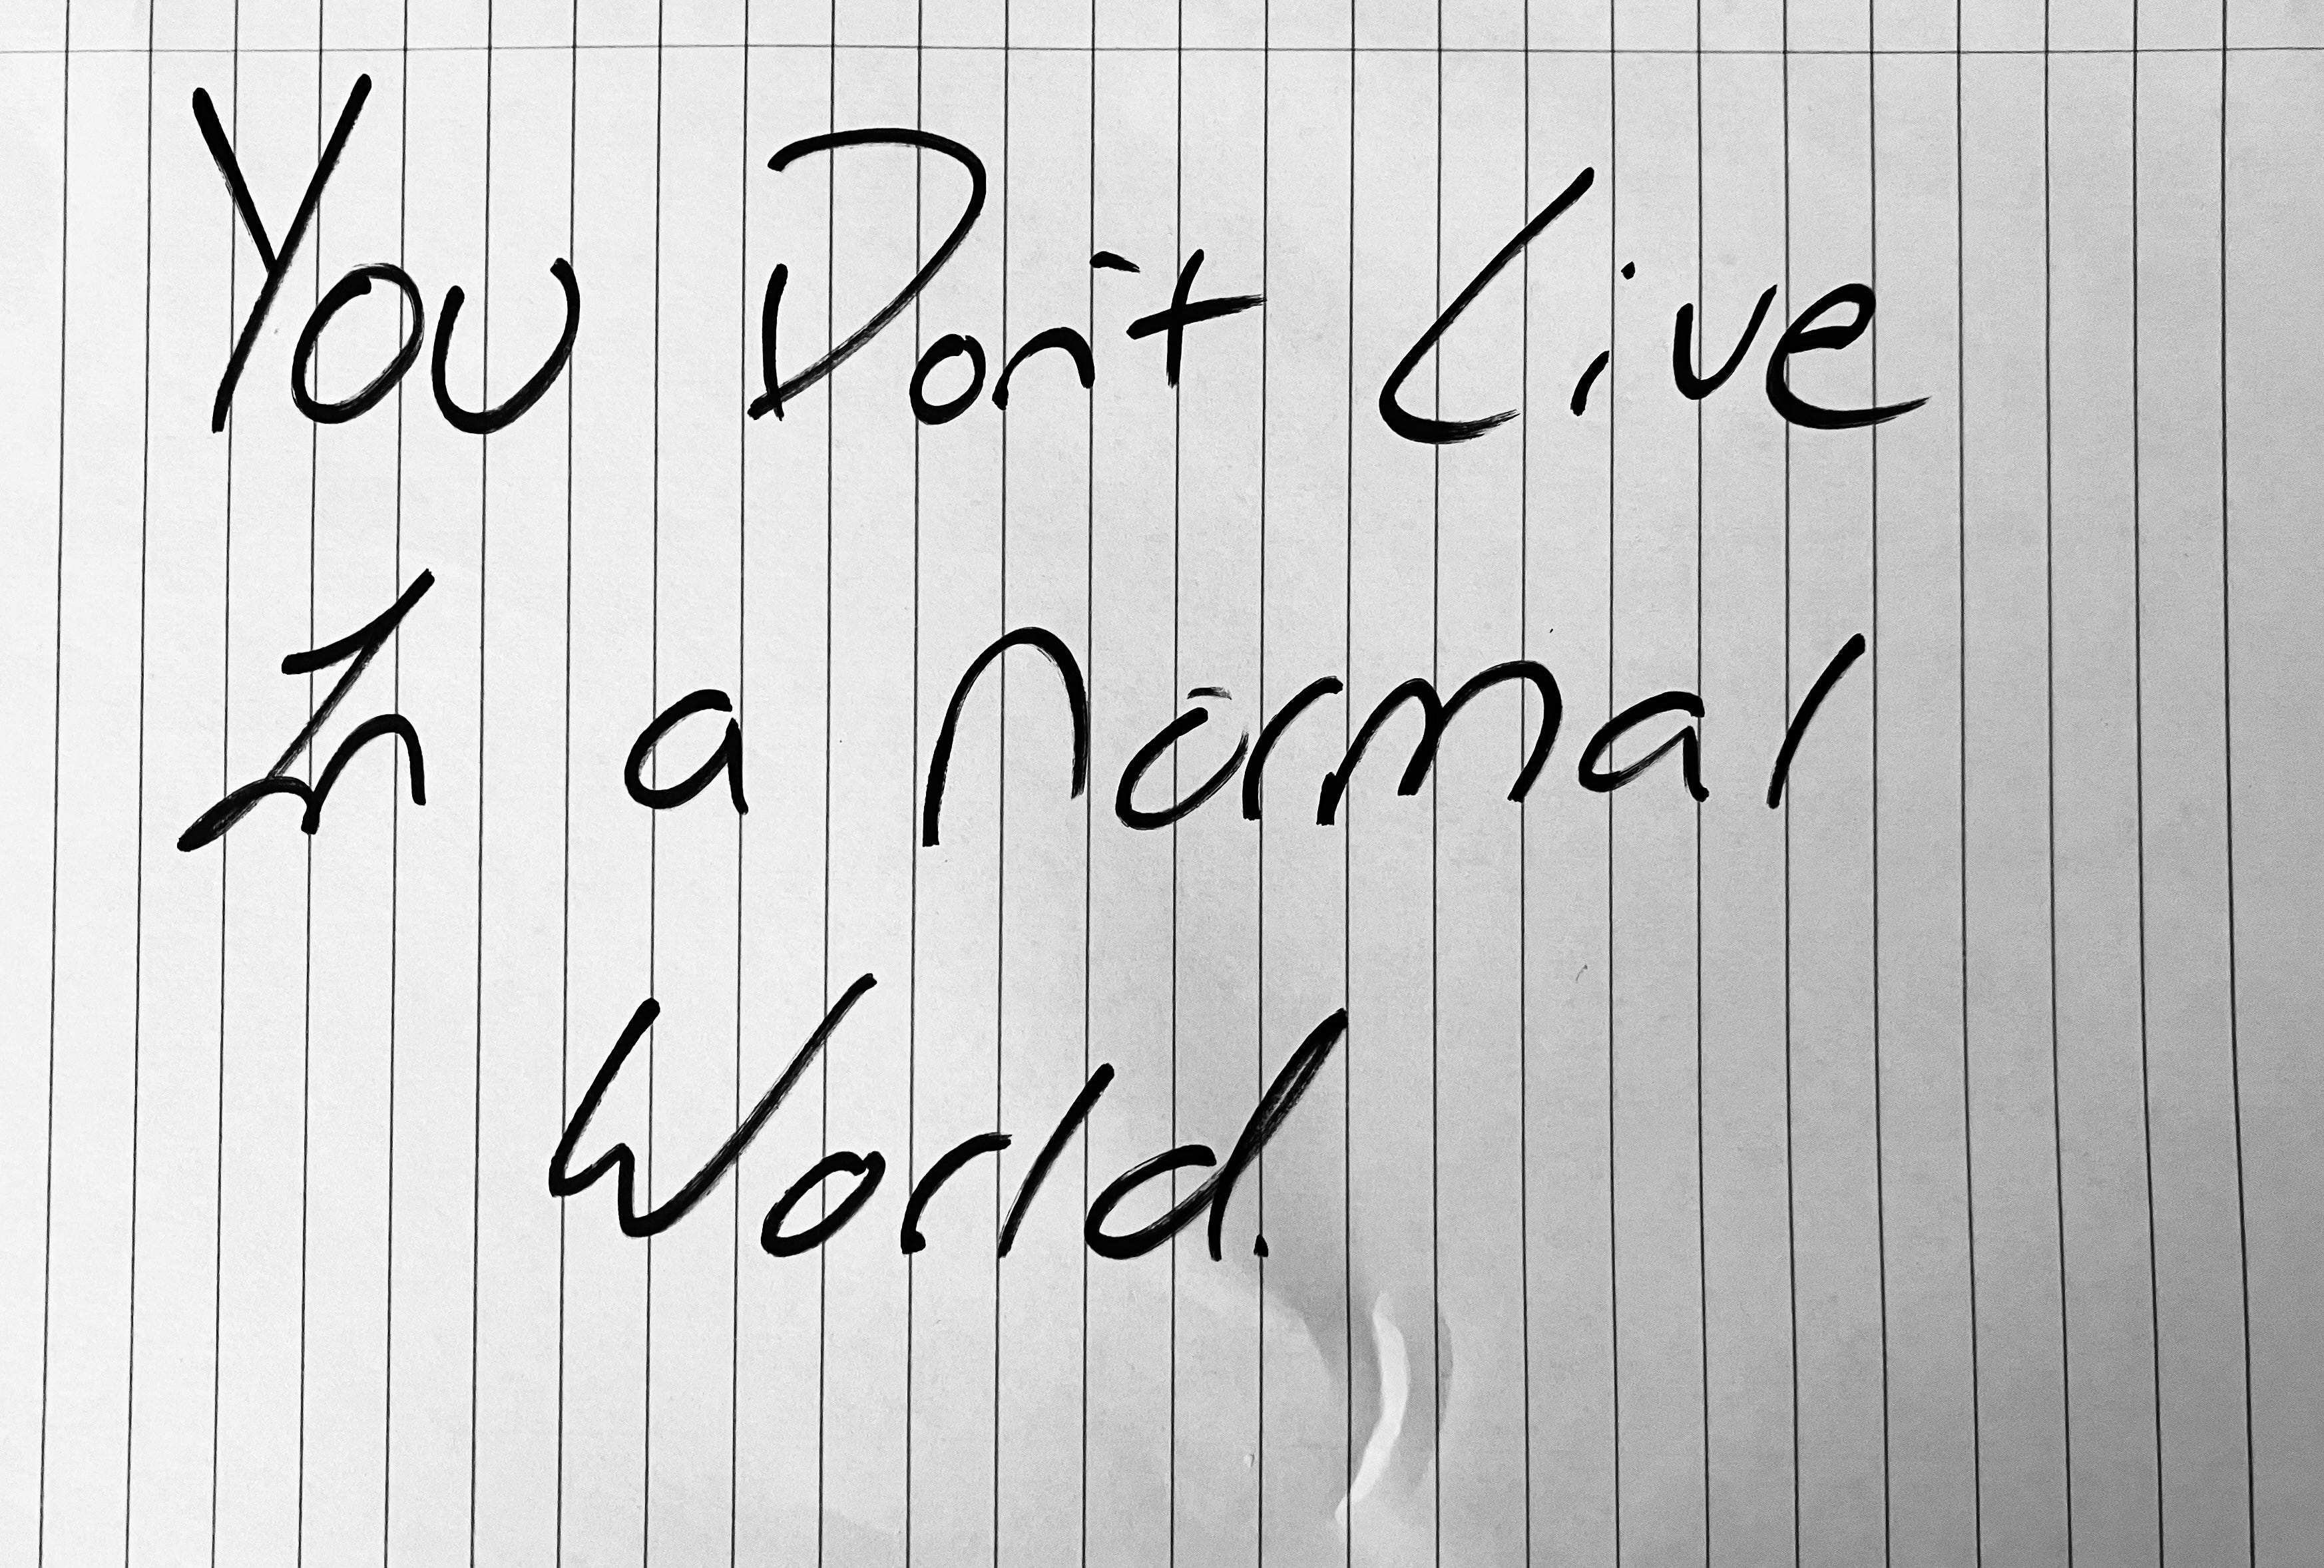 You Don't Live
In a normal
World.